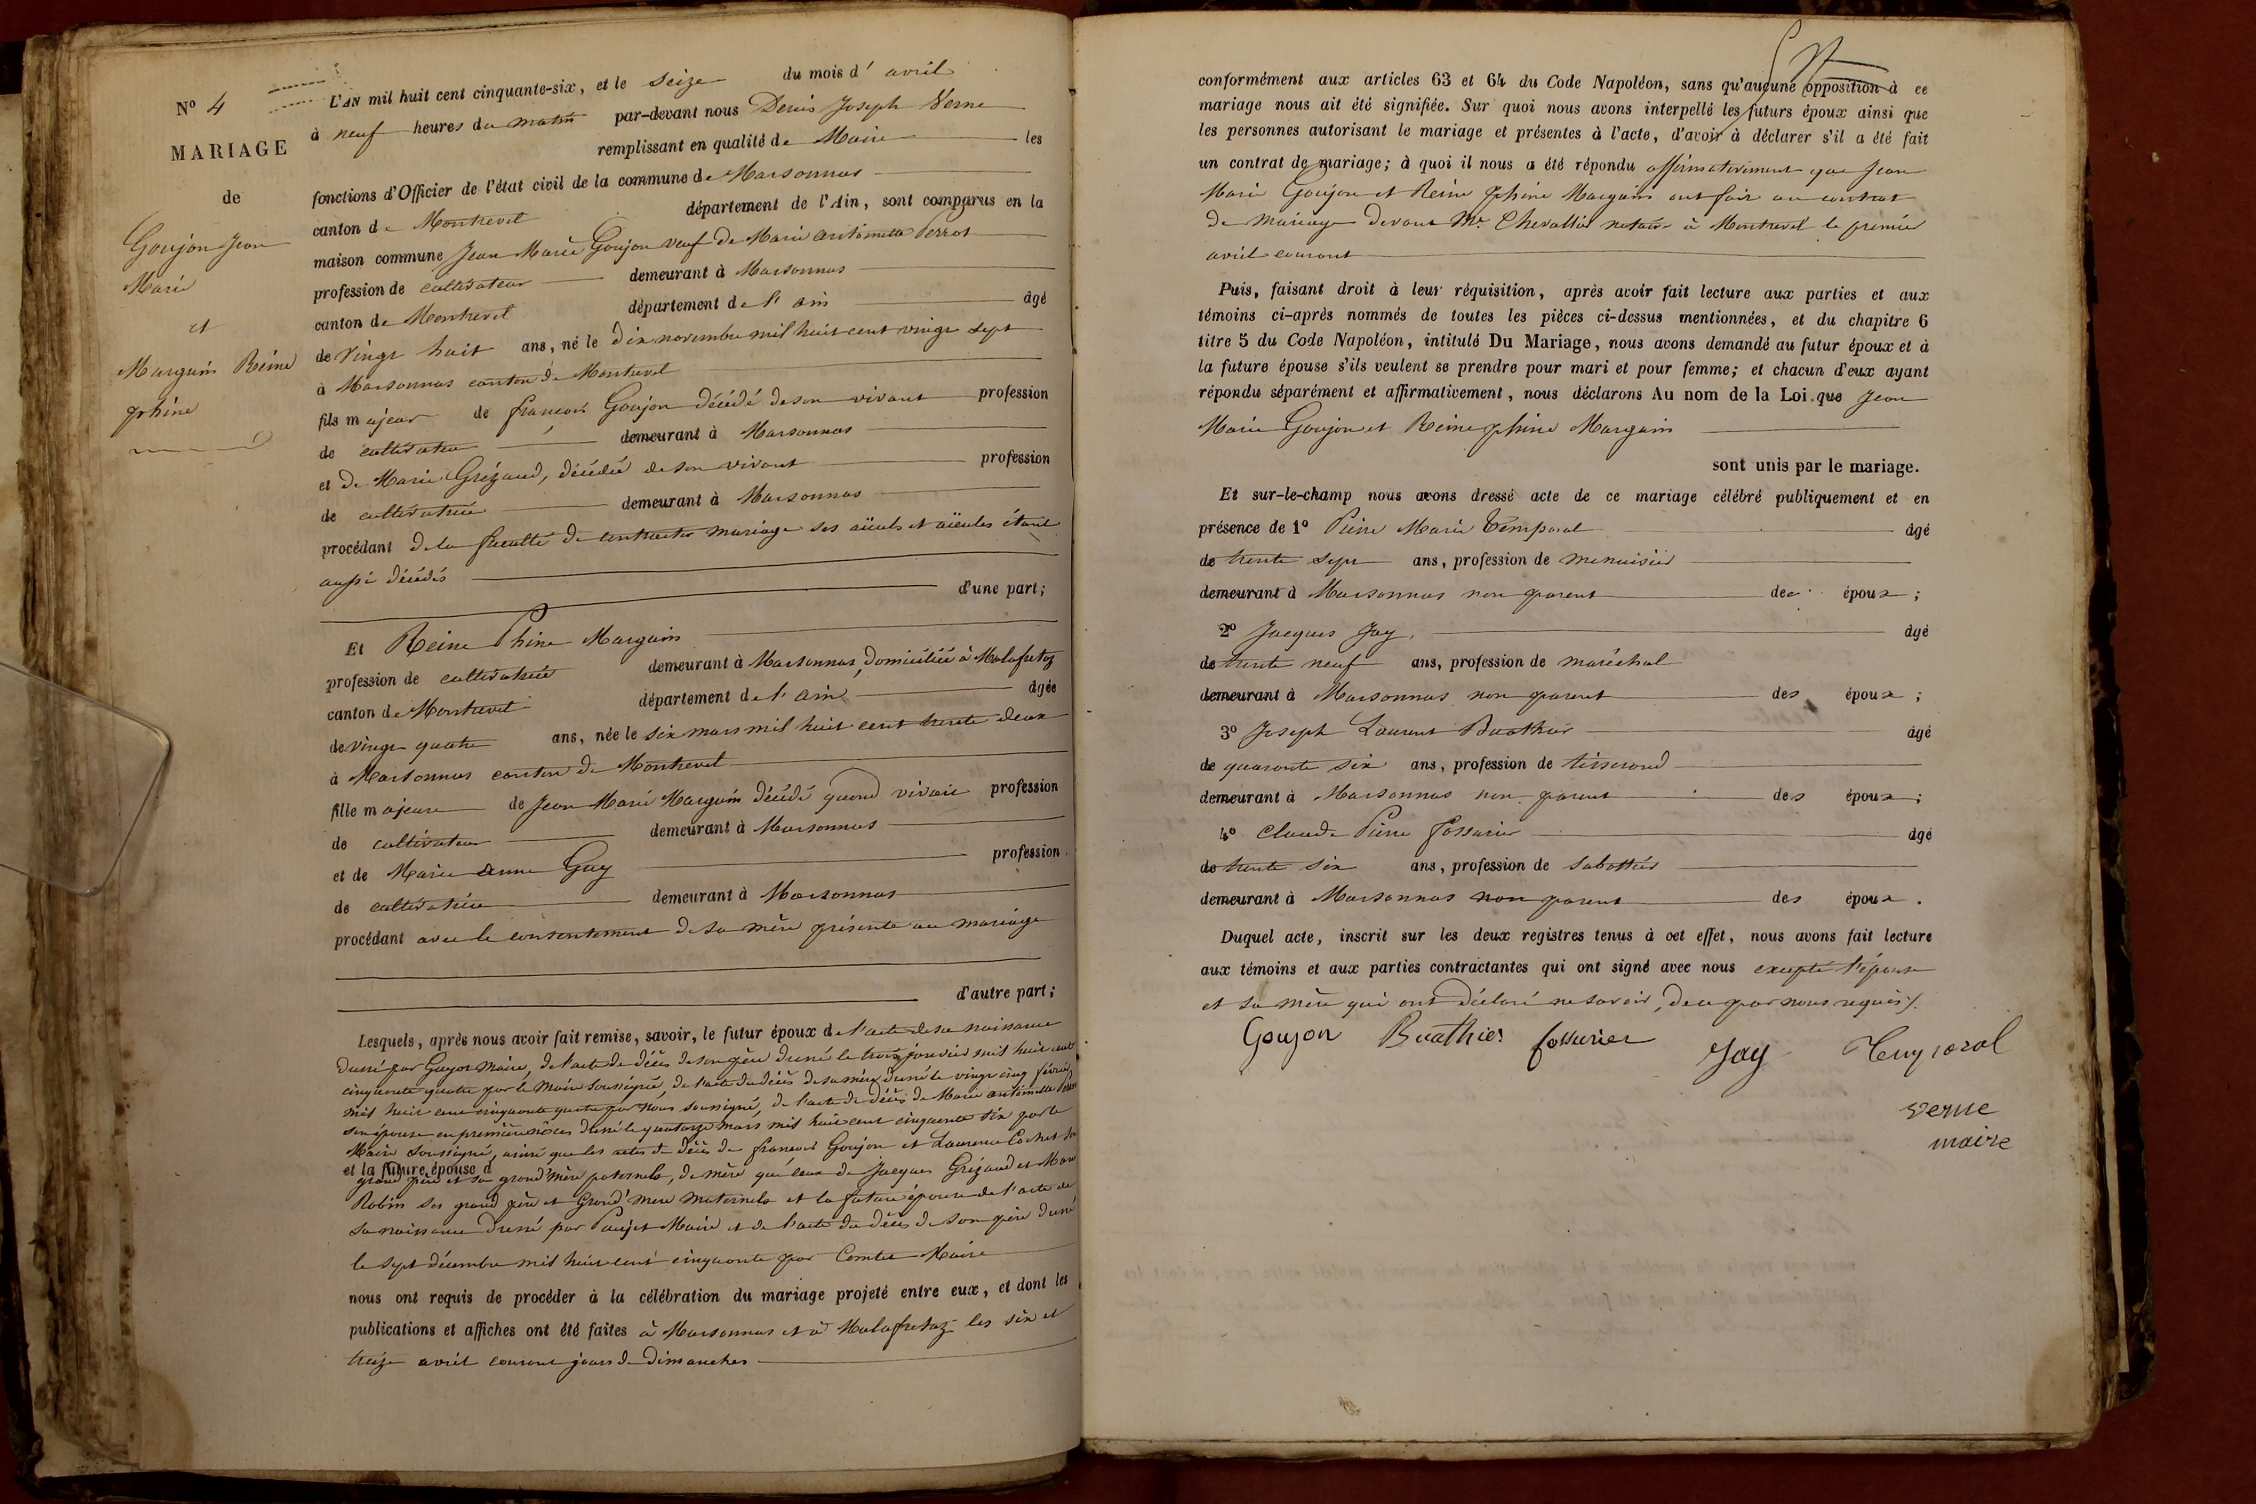 N° 4
MARIAGE
de
Goujon Jean
Marie
et
Marguin Reine
phine
L'AN mil huit cent cinquante-six, et le seize du mois d' avril
à neuf heures du matin par-devant nous Denis Joseph Verne
remplissant en qualité de Maire les
fonctions d'Officier de l'état civil de la commune de Marsonnas
canton de Montrevel département de l'Ain, sont comparus en la
maison commune Jean Marie Goujon veuf de Marie antoinette Perrot
profession de cultivateur demeurant à Marsonnas
canton de Montrevel département de l'ain âgé
de vingt huit ans, né le dix novembre mil huit cent vingt sept
à Marsonnas canton de Montrevel
fils majeur de françois Goujon décédé de son vivant profession
de cultivateur demeurant à Marsonnas
et de Marie Grézaud, décédée de son vivant profession
de cultivatrice demeurant à Marsonnas
procédant de la faculté de contracter mariage ses aïeuls et aïeules étant
aussi décédés d'une part;
Et Reine Phine Marguin
profession de cultivatrice demeurant à Marsonnas, domiciliée à Malafretaz
canton de Montrevel département de l'ain âgée
de vingt quatre ans, née le six mars mil huit cent trente deux
à Marsonnas canton de Montrevel
fille majeure de Jean Marie Marguin décédé quand vivait profession
de cultivateur demeurant à Marsonnas
et de Marie Anne Guy profession
de cultivatrice demeurant à Marsonnas
procédant avec le consentement de sa mère présente au mariage
d'autre part;
Lesquels, après nous avoir fait remise, savoir, le futur époux de l'acte de sa naissance
dressé par Guyot Maire, de l'acte de décès de son père dressé le trois janvier mil huit cent
cinquante quatre par le Maire soussigné, de l'acte de décès de sa mère dressé le vingt cinq février
mil huit cent cinquante quatre par nous soussigné, de l'acte de décès de Marie antoinette Perrot
son épouse en premières nôces dressé le quatorze mars mil huit cent cinquante six par le
Maire soussigné, ainsi que les actes de décès de françois Goujon et Laurence Cochet son
et la future épouse d
grand père et sa grand'mère paternels, de même que ceux de Jacques Grézaud et Marie
Robin ses grand père et Grand'mere maternels et la future épouse de l'acte de
sa naissance dressé par Paujet Maire et de l'acte de décès de son père dressé
le sept décembre mil huit cent cinquante par Comtet Maire
nous ont requis de procéder à la célébration du mariage projeté entre eux, et dont les
publications et affiches ont été faites à Marsonnas et à Malafretaz les six et
treize avril courant jours de Dimanches
conformément aux articles 63 et 64 du Code Napoléon, sans qu'aucune opposition à ce
mariage nous ait été signifiée. Sur quoi nous avons interpellé les futurs époux ainsi que
les personnes autorisant le mariage et présentes à l'acte, d'avoir à déclarer s'il a été fait
un contrat de mariage; à quoi il nous a été répondu affirmativement que Jean
Marie Goujon et Reine phine Marguin ont fait un contrat
de mariage devant Me Chevallier notaire à Montrevel le premier
avril courant
Puis, faisant droit à leur réquisition, après avoir fait lecture aux parties et aux
témoins ci-après nommés de toutes les pièces ci-dessus mentionnées, et du chapitre 6
titre 5 du Code Napoléon, intitulé Du Mariage, nous avons demandé au futur époux et à
la future épouse s'ils veulent se prendre pour mari et pour femme; et chacun d'eux ayant
répondu séparément et affirmativement, nous déclarons Au nom de la Loi que Jean
Marie Goujon et Reine phine Marguin
sont unis par le mariage.
Et sur-le-champ nous avons dressé acte de ce mariage célébré publiquement et en
présence de 1° Pierre Marie Temporal âgé
de trente sept ans, profession de menuisier
demeurant à Marsonnas non parent des époux ;
2° Jacques Jay âgé
de trente neuf ans, profession de maréchal
demeurant à Marsonnas non parent des époux ;
3° Joseph Laurent Buathier âgé
de quarante six ans, profession de tisserand
demeurant à Marsonnas non parent des époux ;
4° Claude Pierre fossurier âgé
de trente six ans, profession de sabottier
demeurant à Marsonnas non parent des époux .
Duquel acte, inscrit sur les deux registres tenus à cet effet, nous avons fait lecture
aux témoins et aux parties contractantes qui ont signé avec nous excepté l'épouse
et sa mère qui ont déclaré ne savoir, de ce par nous requis
Goujon Buathier fossurier Jay Temporal
Verne
maire